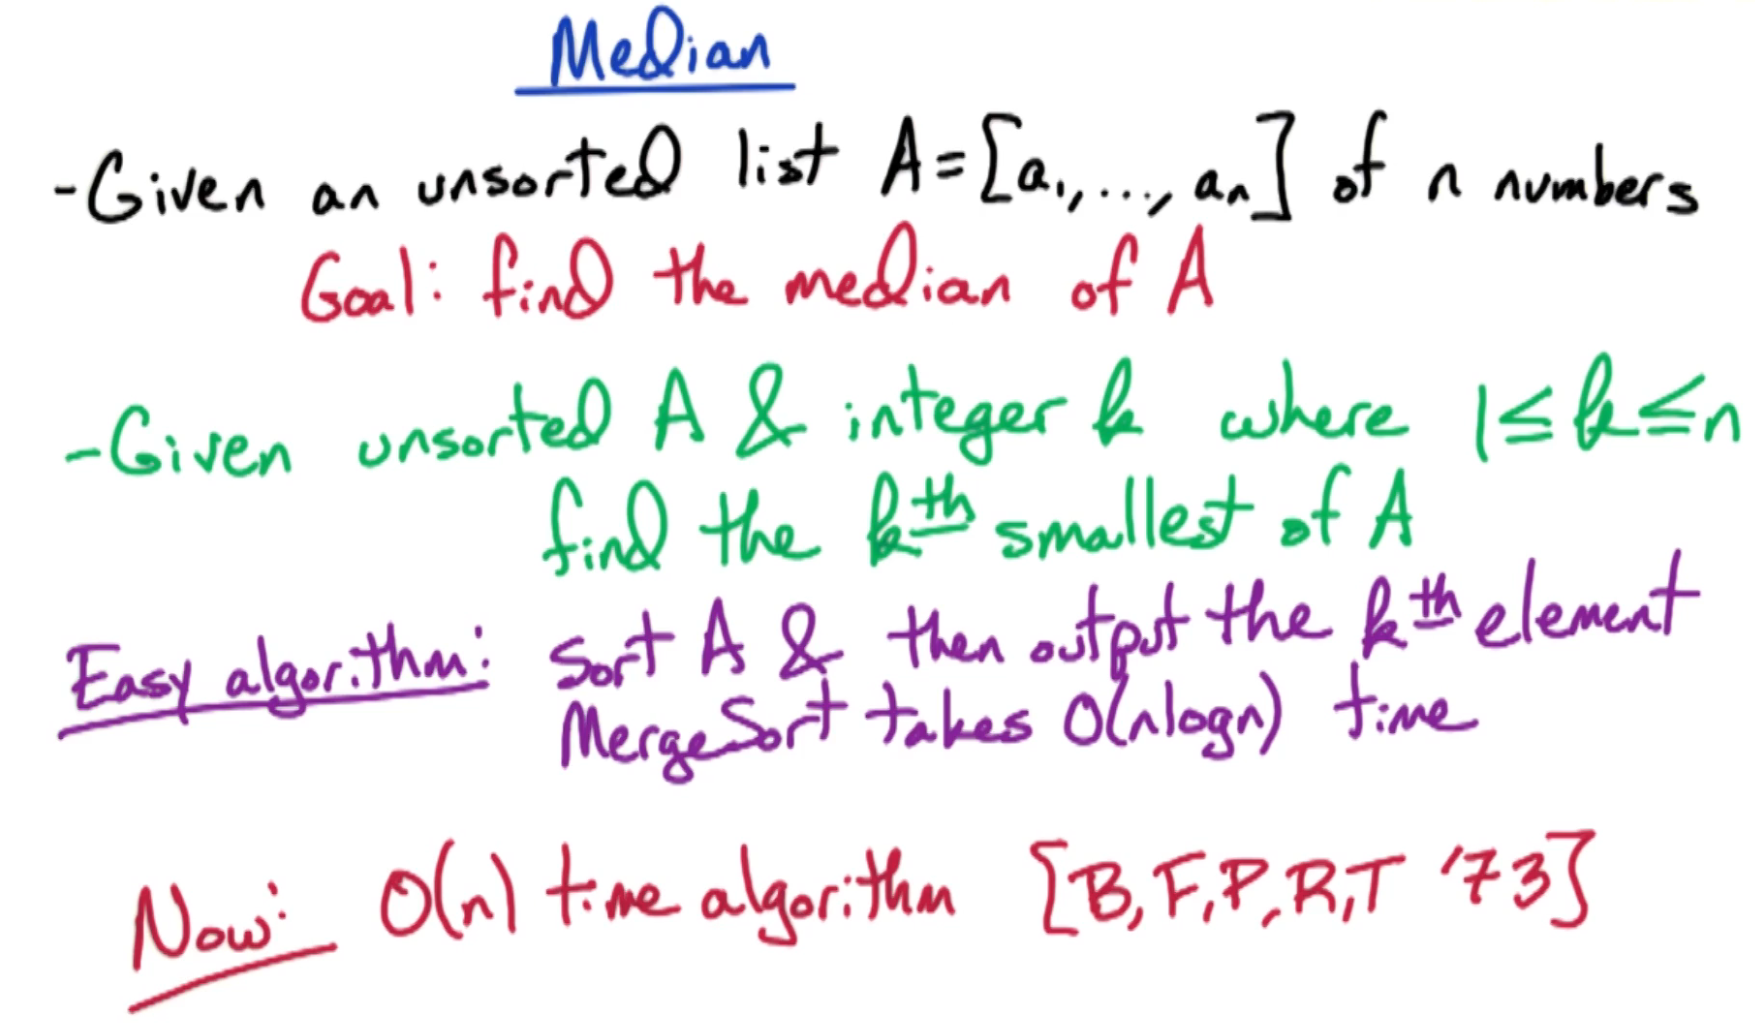 Median
-Given an unsorted list A=[a₁,...,aₙ] of n numbers
Goal: find the median of A
-Given unsorted A & integer k where 1≤k≤n
find the kth smallest of A
Easy algorithm: Sort A & then output the kth element
MergeSort takes O(nlogn) time
Now: O(n) time algorithm [B,F,P,R,T '73]